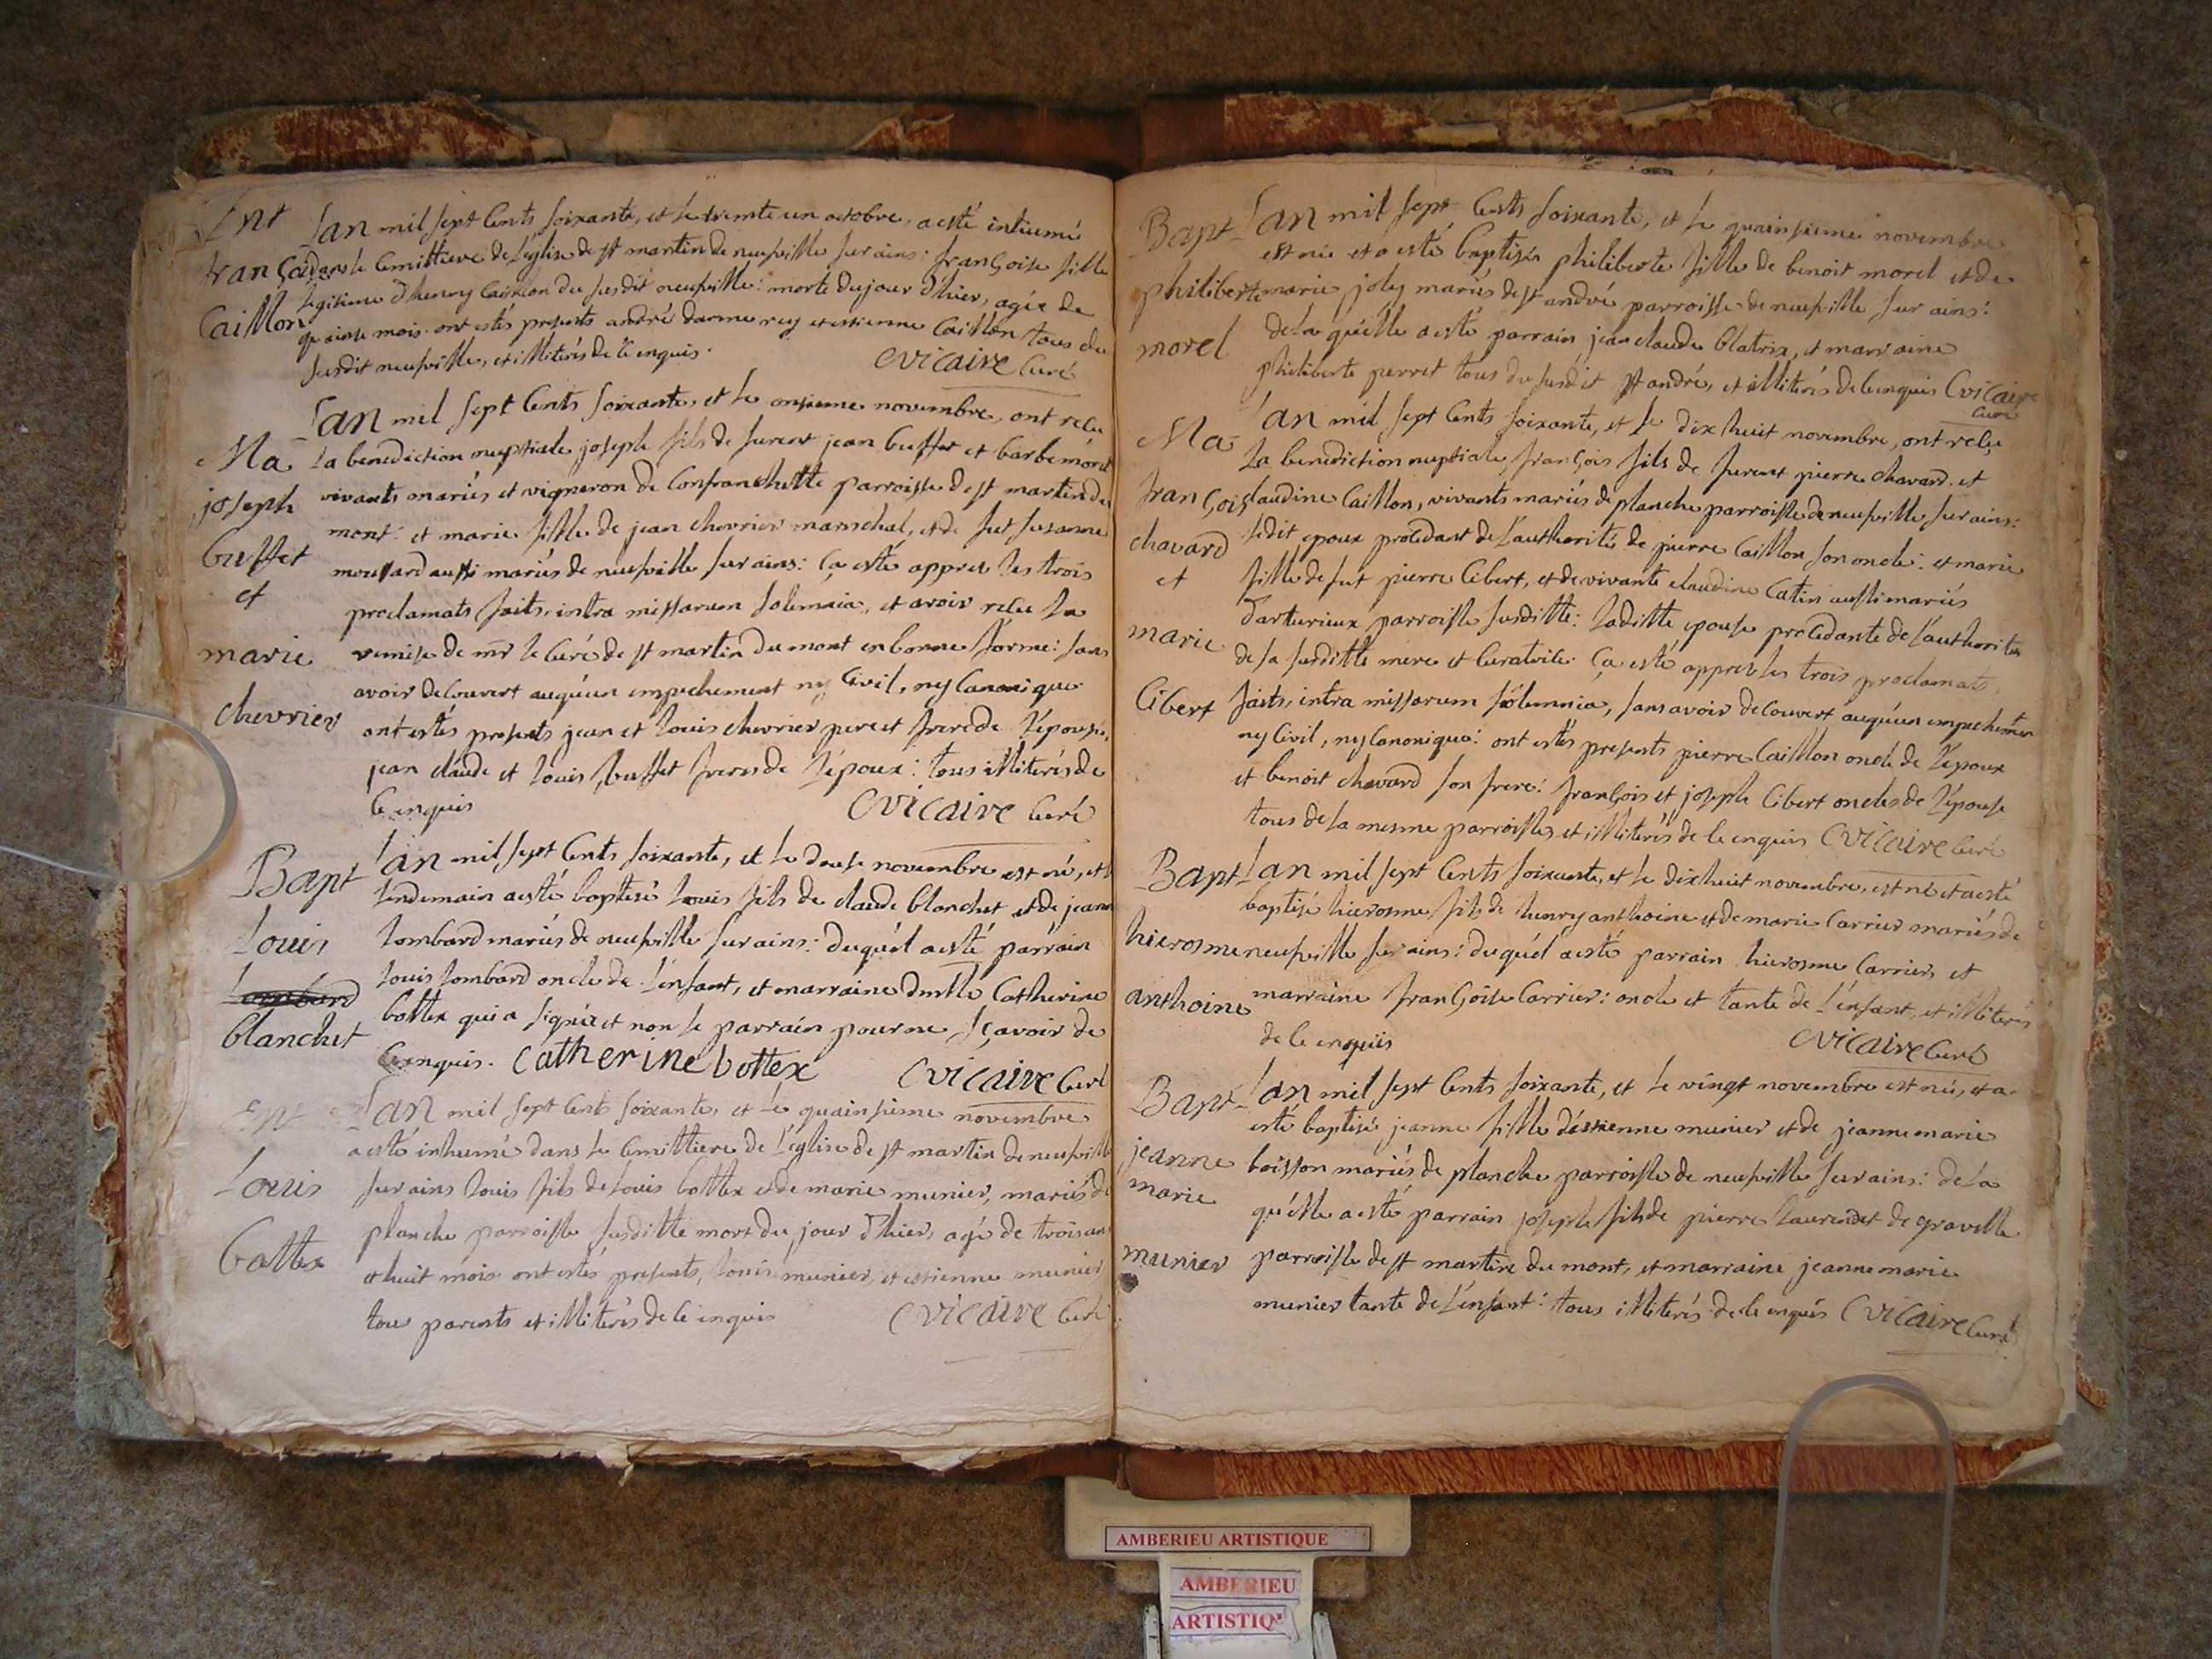 Ent
françoise
Caillon
Lan mil sept Cents soixante, et le trente un octobre, a esté inhumé
dans le Cemittiere de L'église de st martin de neufville sur ains: françoise fille
legitime d'henry Caillon du susdit neufville: morte du jour d'hier, agée de
quainse mois. ont estés presents andré darmerey et estienne Caillon tous du
susdit neufville, et illiterés de ce enquis.
Cvicaire Curé
Ma
joseph
buffet
et
marie
chevrier
Lan mil sept Cents soixante, et le onsieme novembre, ont recu
La benediction nuptiale joseph fils de furent jean buffet et barbe morel
vivants mariés et vigneron de Confranchette parroisse de st martin du
mont: et marie fille de jean chevrier mareschal, et de fut susanne
moussard aussi mariés de neufville sur ains: Ça esté appres les trois
proclamats faits, intra missarum solemnia, et avoir recu La
remise de mr le Curé de st martin du mont en bonne forme: sans
avoir decouvert auquun empechement ny Civil, ny Canonique
ont estés presents jean et Louis chevrier pere et frere de L'épouse,
jean claude et Louis buffet freres de L'époux: tous illiterés de
Ce enquis
Cvicaire Curé
Bapt
Louis
Lombard
blanchet
Lan mil sept Cents soixante, et le douse novembre est né, et le
Lendemain a esté baptisé Louis fils de claude blanchet et de jeanne
Lombard mariés de neufville sur ains: duquél a esté parrain
Louis Lombard oncle de L'enfant, et marraine dmlle Catherine
bottex qui a signée et non le parrain pour ne sçavoir de
Ce enquis. Catherine bottex
Cvicaire Curé
Ent
Louis
bottex
Lan mil sept Cents soixante, et Le quainsieme novembre
a esté inhumé dans Le Cemittiere de L'église de st martin de neufville
sur ains Louis fils de Louis bottex et de marie munier, mariés de
planche parroisse susditte mort du jour d'hier, agé de trois ans
et huit mois ont estés presents, Louis munier, et estienne munier
tous parents et illiterés de Ce enquis
Cvicaire Curé
Bapt
philiberte
morel
Lan mil sept Cents soixante, et le quainsieme novembre
est née et a esté baptisée philiberte fille de benoit morel et de
marie joly mariés de st andré parroisse de neufville sur ains:
de La quélle a esté parrain jean claude blatrix, et marraine
philiberte perret tous du susdit st andré, et illiterés de Ce enquis Cvicaire
Curé
Ma
françois
chavard
et
marie
Cibert
Lan mil sept Cents soixante, et Le dix huit novembre, ont recu
La benediction nuptiale françois fils de furent pierre chavard et
claudine Caillon, vivants mariés de planche parroisse de neufville sur ains:
Ledit epoux procédant de L'authorité de pierre Caillon son oncle: et marie
fille de fut pierre Cibert, et de vivante claudine Catin aussi mariés
d'arturieux parroisse susditte: Laditte epouse procédante de L'authorité
de sa susditte mere et Curatrice. Ça esté appres les trois proclamats
faits, intra missarum solemnia, sans avoir decouvert auquun empechement
ny Civil, ny Canonique: ont estés presents pierre Caillon oncle de L'époux
et benoit chavard son frere: françois et joseph Cibert oncles de L'épouse
tous de La mesme parroisse, et illiterés de Ce enquis Cvicaire Curé
Bapt
hierosme
anthoine
Lan mil sept Cents soixante, et Le dixhuit novembre, est né et a esté
baptisé hierosme fils de henry anthoine et de marie Carrier mariés de
neufville sur ains: duquél a esté parrain hierosme Carrier, et
marraine françoise Carrier: oncle et tante de L'enfant, et illiterés
de Ce enquis
Cvicaire Curé
Bapt
jeanne
marie
munier
Lan mil sept Cents soixante, et Le vingt novembre est née, et a
esté baptisé jeanne fille d'éstienne munier et de jeanne marie
boisson mariés de planche parroisse de neufville sur ains: de La
quélle a esté parrain joseph fils de pierre Laurendet de gravelle
parroisse de st martin du mont, et marraine jeanne marie
munier tante de L'enfant: tous illiterés de Ce enquis Cvicaire Curé
AMBERIEU ARTISTIQUE
AMBERIEU
ARTISTIQ